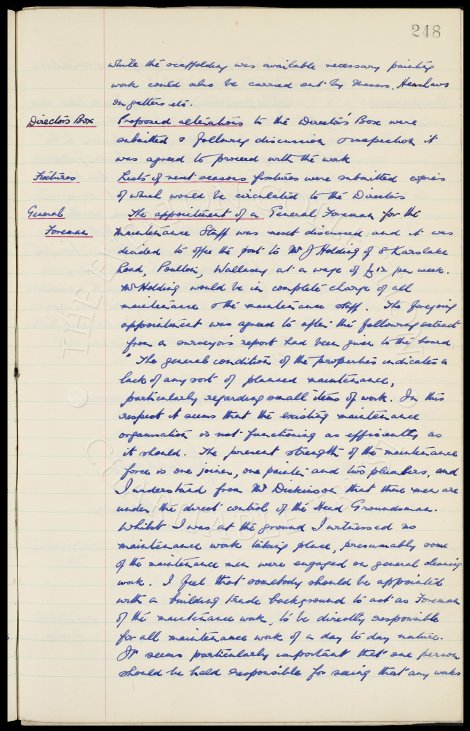 248
while the scaffolding was available necessary painting
work could also be carried out by Messrs. Henshaws
on gutters etc.
Directors Box Proposed alterations to the Directors' Box were
submitted & following discussion & inspection it
was agreed to proceed with the work
Fixtures Lists of next seasons fixtures were submitted copies
of which would be circulated to the Directors
General The appointment of a General Foreman for the
Foreman maintenance Staff was next discussed and it was
decided to offer the post to Mr J Holding of 8 Karslake
Road, Poulton, Wallasey at a wage of £12 per week.
Mr Holding would be in complete charge of all
maintenance & the maintenance staff. The foregoing
appointment was agreed to after the following extract
from a surveyor's report had been given to the board
" The general condition of the properties indicates a
lack of any sort of planned maintenance,
particularly regarding small items of work. In this
respect it seems that the existing maintenance
organisation is not functioning as efficiently as
it should. The present strength of the maintenance
force is one joiner, one painter and two plumbers, and
I understand from Mr Dickinson that these men are
under the direct control of the Head Groundsman.
Whilst I was at the ground I witnessed no
maintenance work taking place, presumably some
of the maintenance men were engaged on general cleaning
work. I feel that somebody should be appointed
with a building trade background to act as Foreman
of the maintenance work, to be directly responsible
for all maintenance work of a day to day nature.
It seems particularly important that one person
should be held responsible for seeing that any works